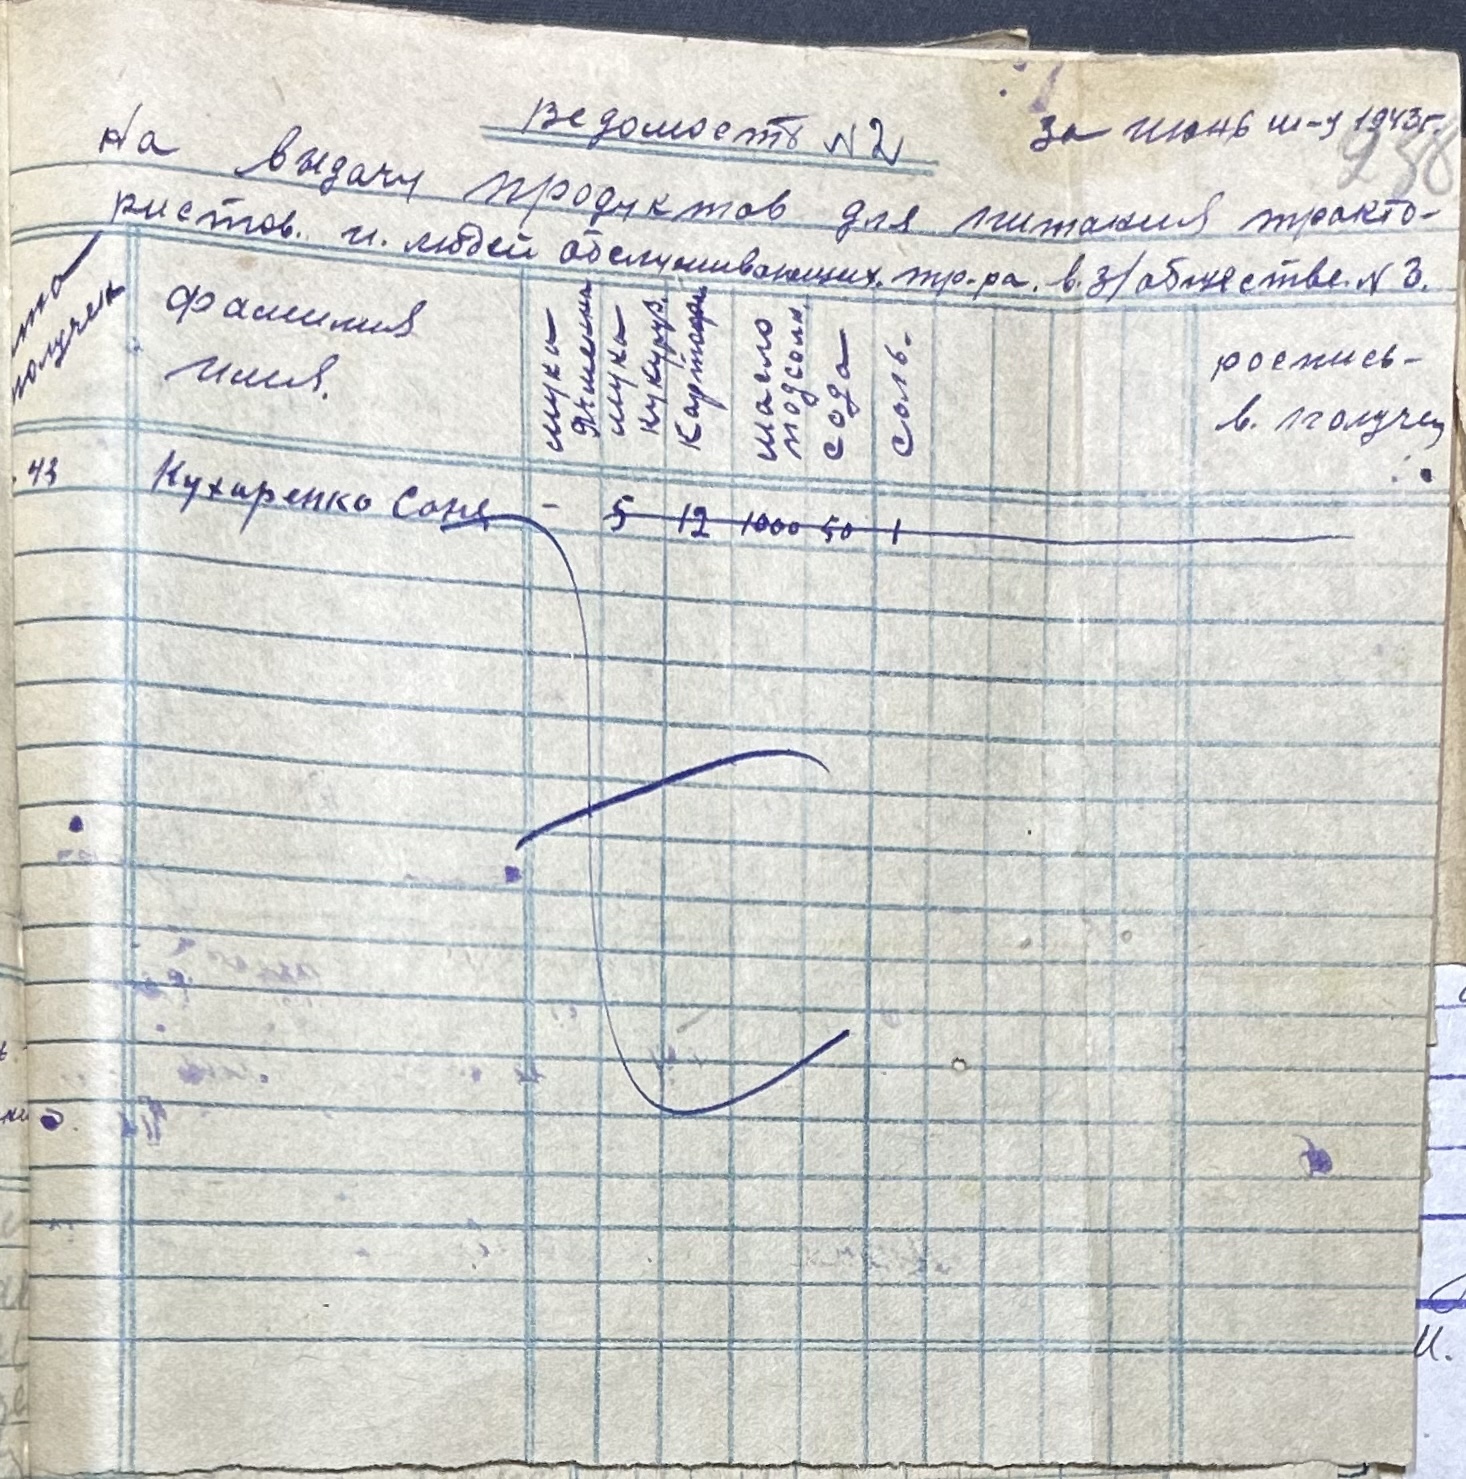 Ведомость №2
за июнь м-ц 1943г.
258
На выдачу продуктов для питания тракто-
ристов. и. людей обслуживающих. тр-ра. в. з/обществе. № 3.
получен
фамилия
имя.
мука ячменн
мука кукуруз.
Картофель
масло подсолн.
сода
соль.
роспись-
в. получен
.43 Кухаренко Соня - 5 12 1000 50 1